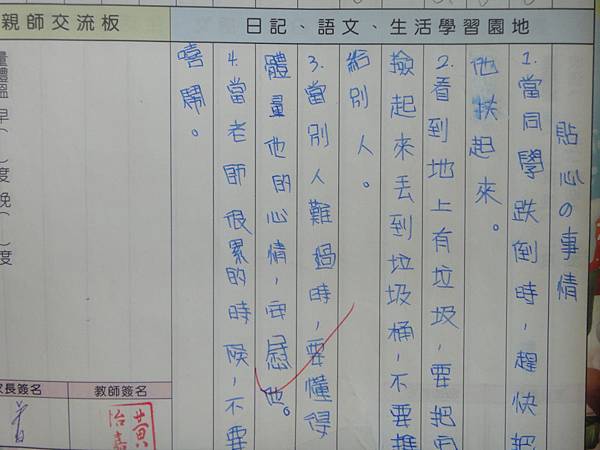 日記、語文、生活學習園地
貼心の事情
1.當同學跌倒時，趕快把
他扶起來。
2.看到地上有垃圾，要把
撿起來丟到垃圾桶，不要推
給別人。
3.當別人難過時，要懂得
體量他的心情，安慰他。
4.當老師很累的時候，不要
嘻鬧。
親師交流板
量體溫 早( )度 晚( )度
教師簽名
黃怡嘉
家長簽名